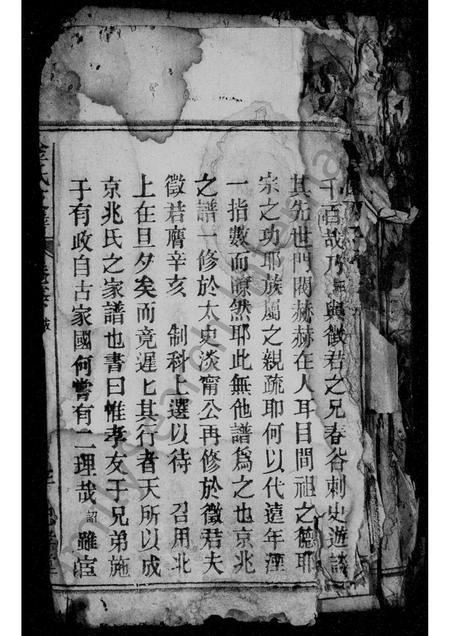 百哉乃無與徵君之兄春谷刺史遊談
其先世門閥赫赫在人耳目間祖之德耶
宗之功耶族屬之親疏耶何以代遠年湮
一指數而瞭然耶此無他譜為之也京兆
之譜一修於太史淡甯公再修於徵君夫
徵君膺辛亥 制科上選以待 召用北
上在旦夕矣而竟遲匕其行者天所以成
京兆氏之家譜也書曰惟孝友于兄弟施
于有政自古家國何嘗有二理哉詔雖諠